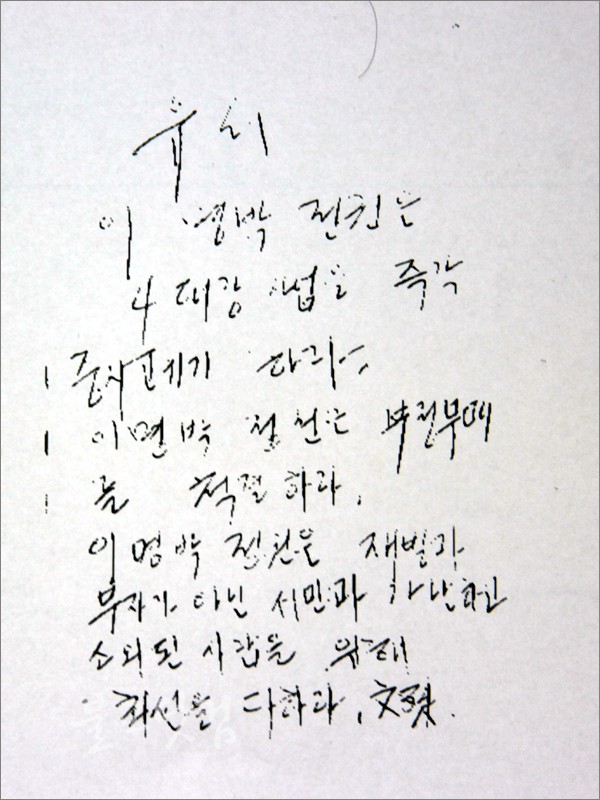 유서
이명박 정권은
4대강 사업을 즉각
중지 폐기하라.
이명박 정권은 부정부패
를 척결하라.
이명박 정권은 재벌과
부자가 아닌 서민과 가난하고
소외된 사람을 위해
최선을 다하라. 文殊.